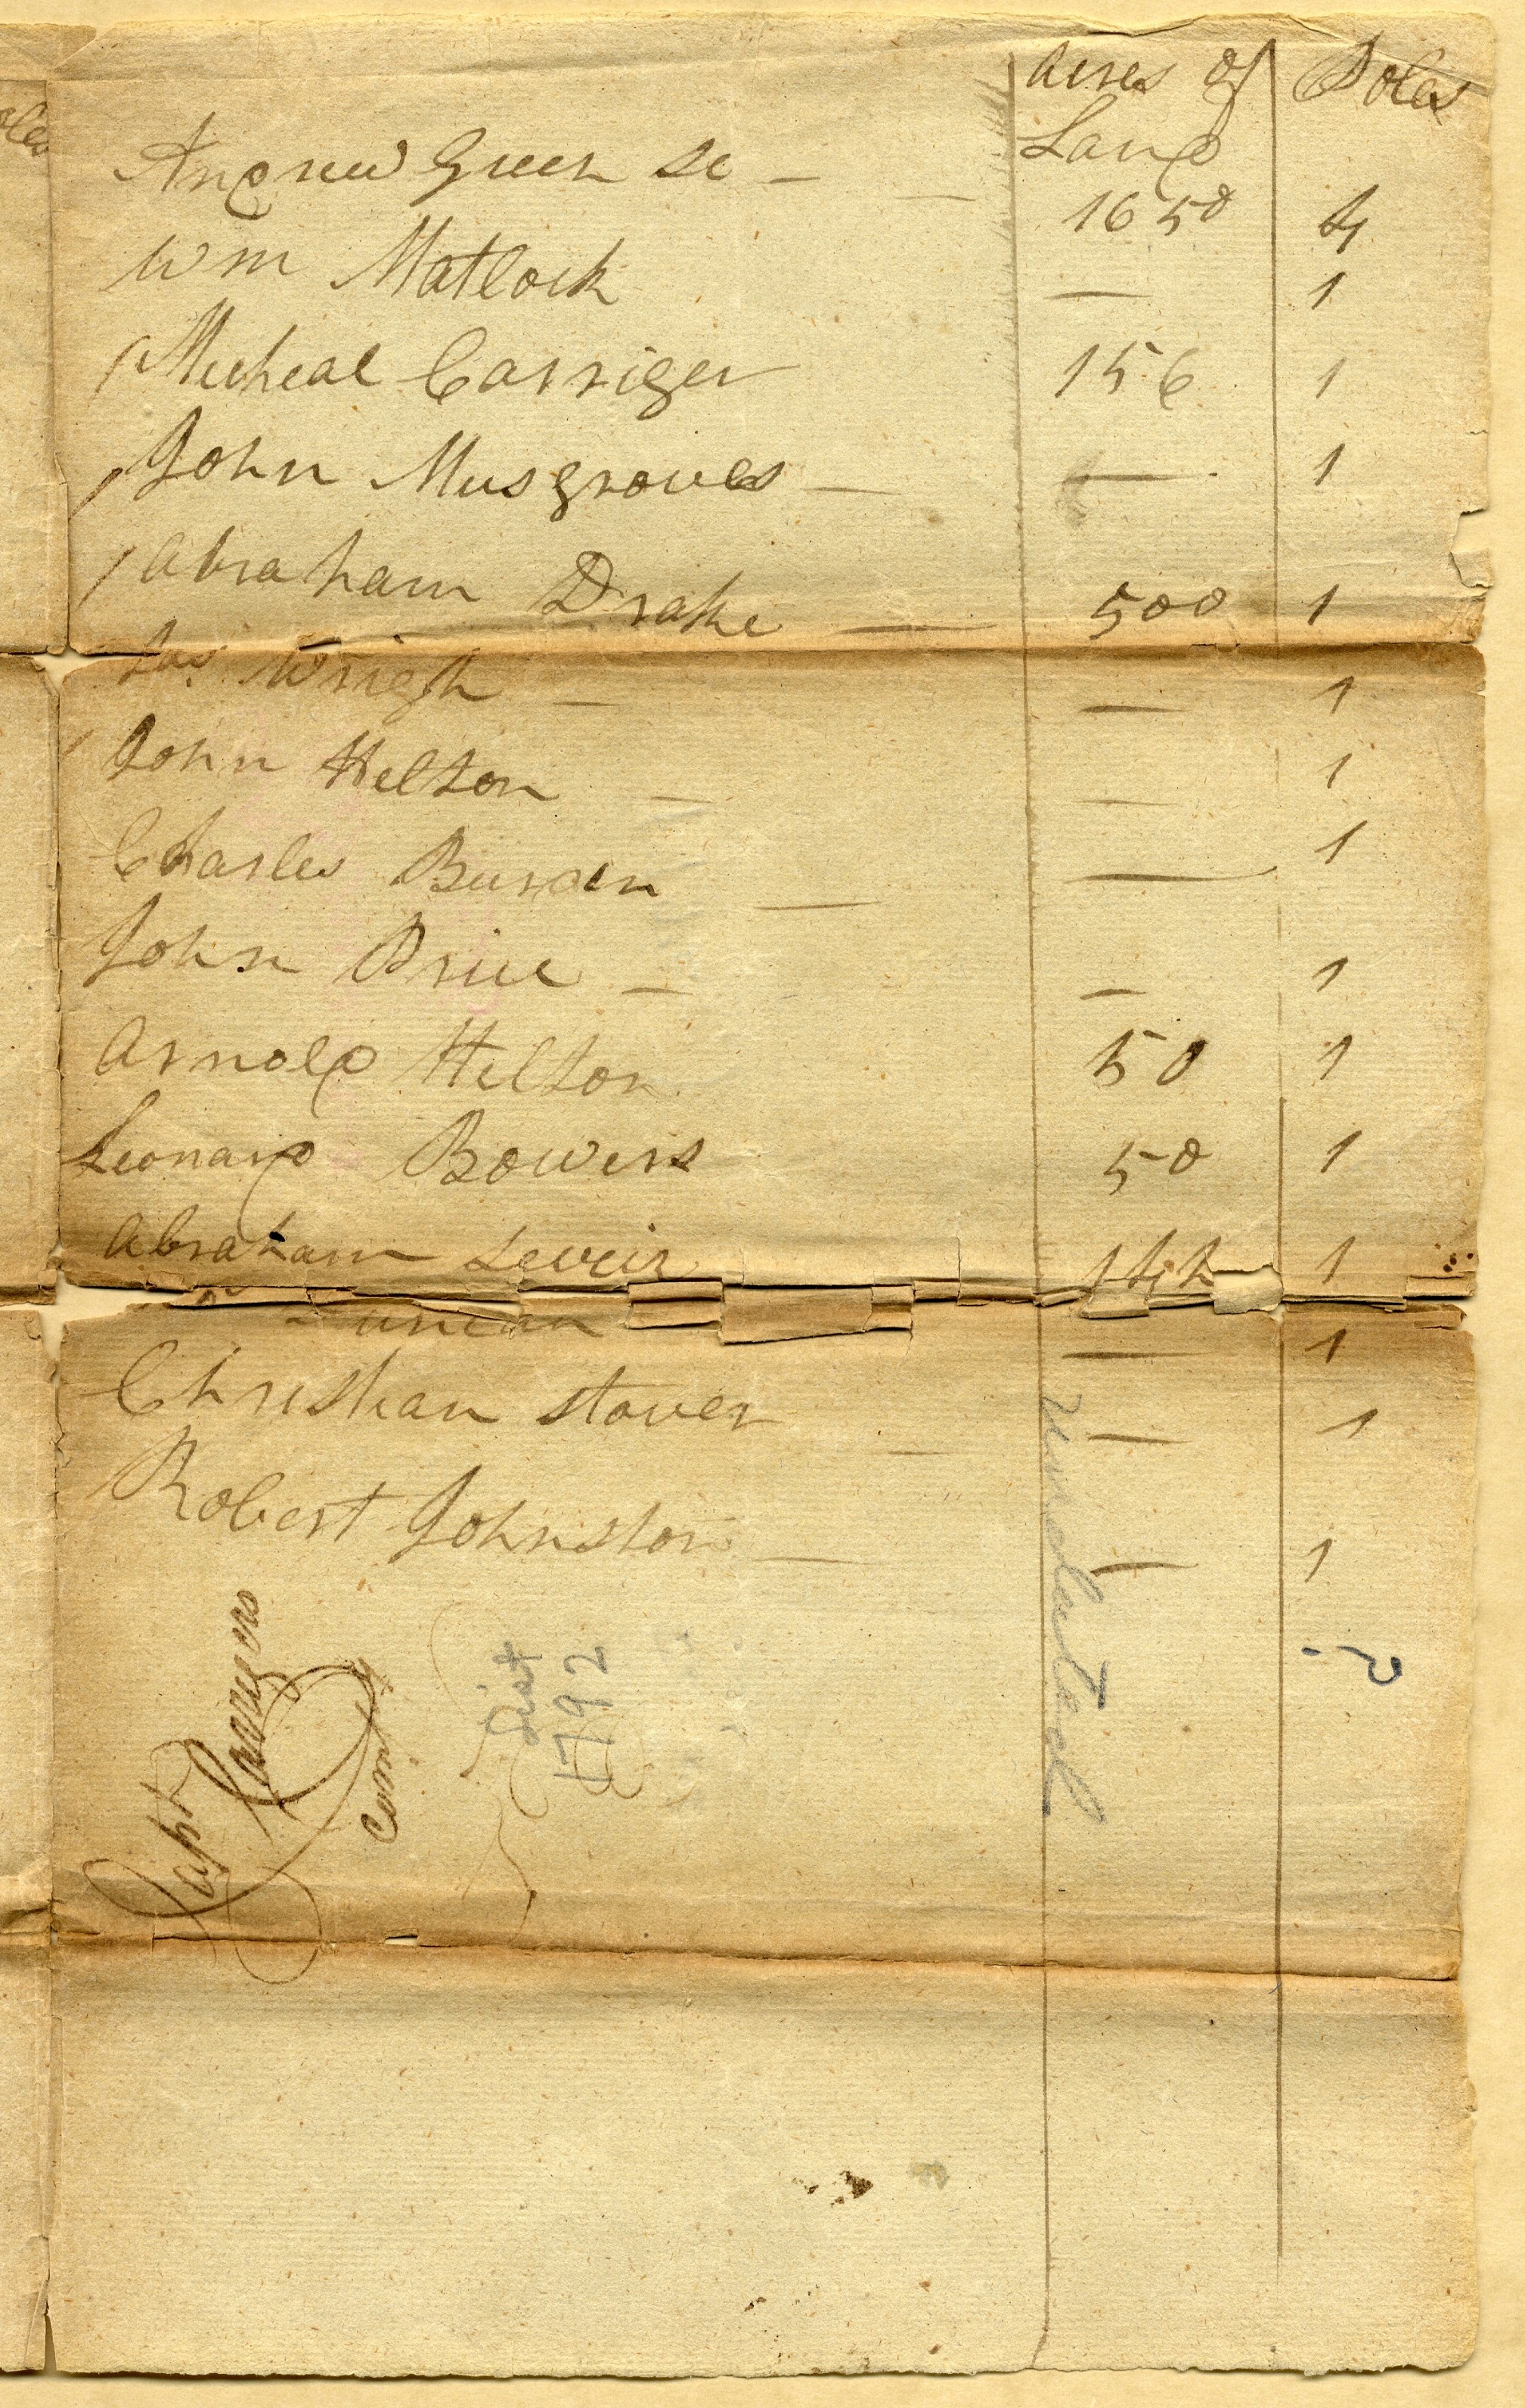 acres of Poles
Land
Andrew Green Se
1650 4
Wm Matlock — 1
Micheal Carriger 156 1
John Musgroves — 1
Abraham Drake 500 1
Jas Wrigh — 1
John Helton — 1
Charles Burden — 1
John Price — 1
Arnold Helton 50 1
Leonard Bowers 50 1
Abraham 142 1
Duncan — 1
Christian Stover — 1
Robert Johnston — 1
Capt Carrigers
Comy
List
1792
undated
?